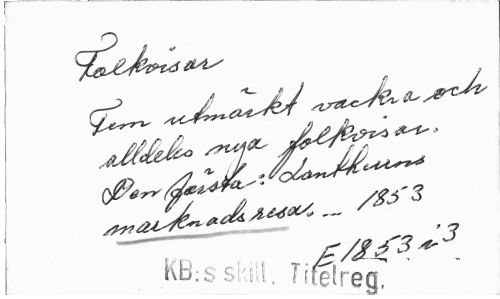 Folkvisar
Fem utmärkt vackra och
alldeles nya folkvisar.
Den första: Lantherrns
marknadsresa. _ 1853
E 1853 i 3
KB:s skill. Titelreg.